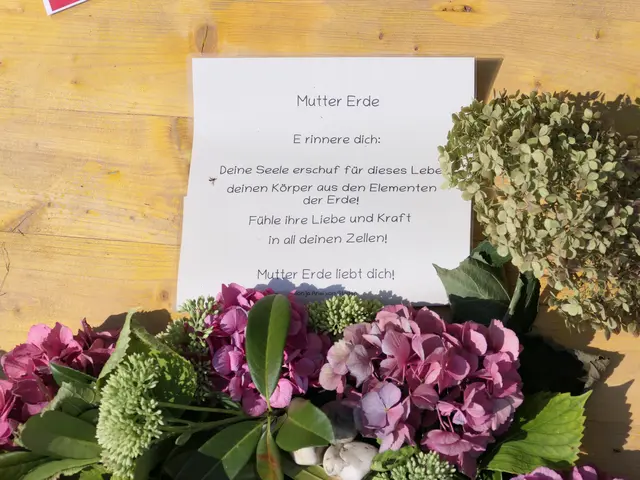 Mutter Erde
E rinnere dich:
Deine Seele erschuf für dieses Lebe
deinen Körper aus den Elementen
der Erde!
Fühle ihre Liebe und Kraft
in all deinen Zellen!
Mutter Erde liebt dich!